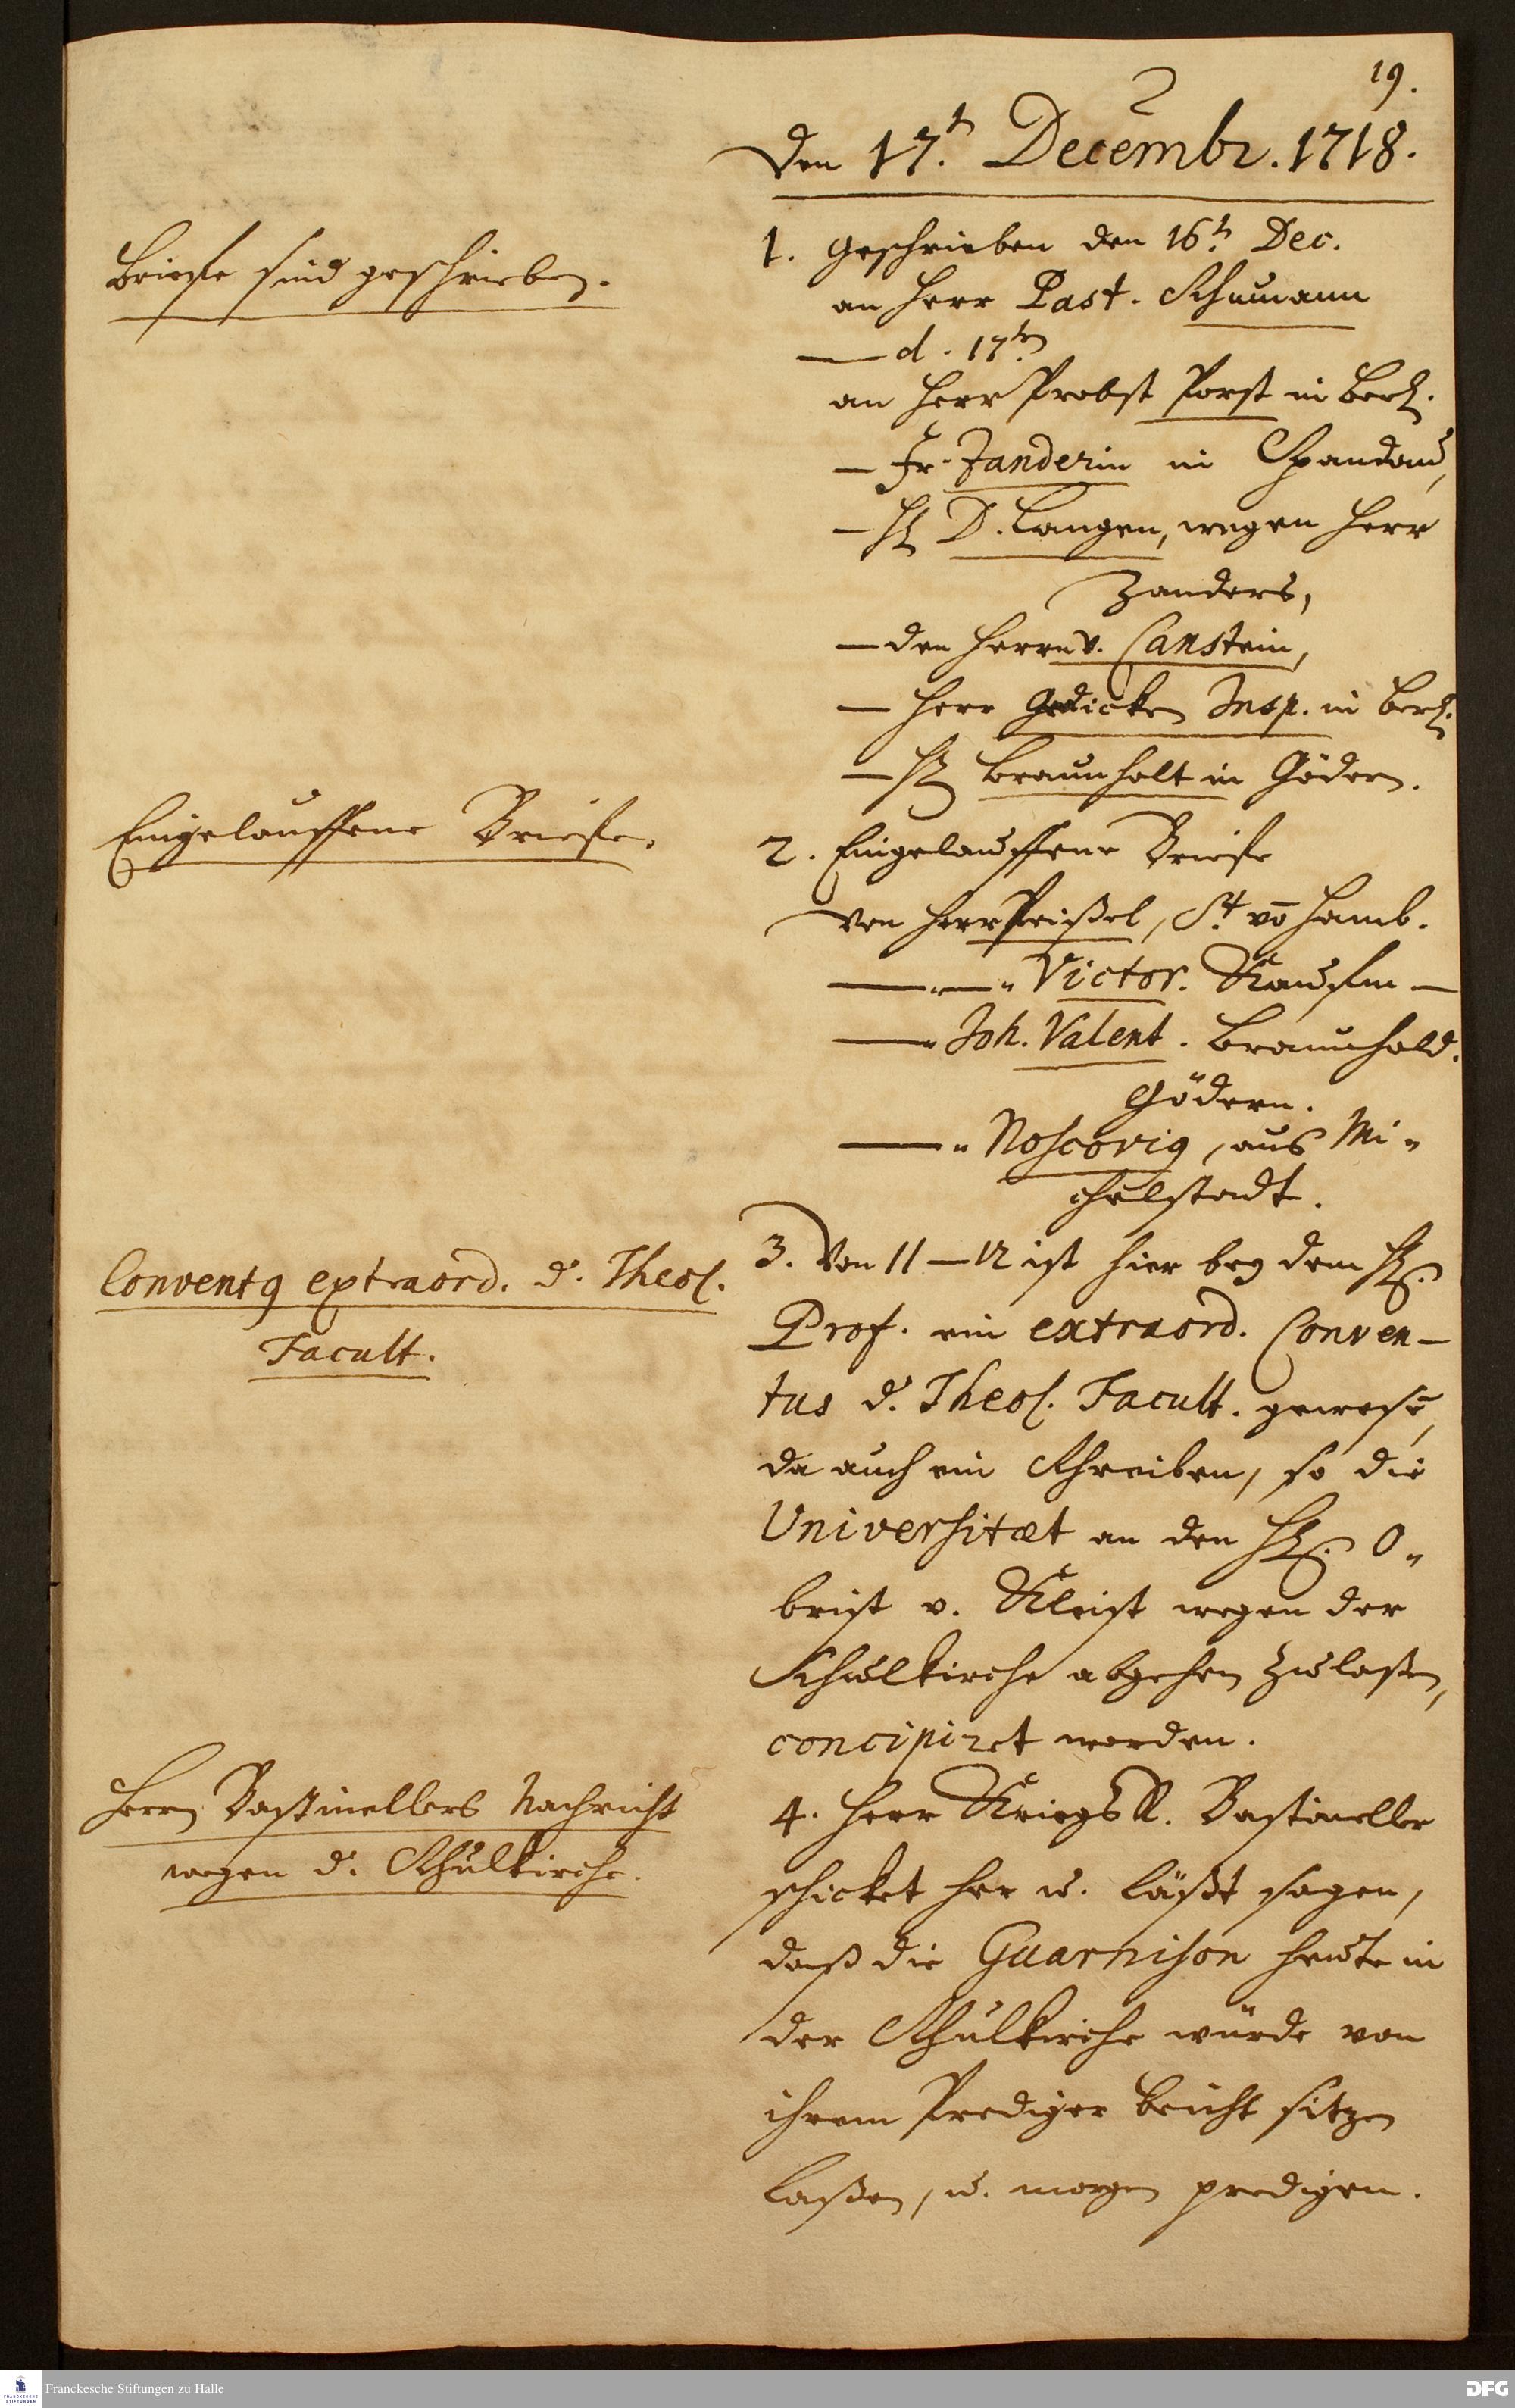 19.
den 17.t Decembr. 1718.
Briefe sind geschrieben.
1. Geschrieben den 16.t Dec.
an Herr Past. Schumann
— d. 17.t
an Herr Probst Porst in Berl.
— Fr. Zanderin in Spandau,
— H. D. Langen, wegen Herr
Zanders,
— den Herrn v. Canstein,
— Herr Gedicken Insp. in Berl.
— H. Braunholt in Gödern.
Eingelauffene Briefe.
2. Eingelauffene Briefe
von Herr Preißel, St. vō Hamb.
— — Victor. Kaufm —
— Joh. Valent. Braunhold.
Gödern.
— Noscovig, aus Mi-
chelstadt.
Conventq extraord. d. Theol.
Facult.
3. Von 11–12 ist hier bey dem H.
Prof. ein extraord. Conven-
tus d. Theol. Facult. gewesē,
da auch ein Schreiben, so die
Universitæt an den H. O-
brist v. Kleist wegen der
Schulkirche abgehen zulaßen,
concipiret worden.
Herrn Bastinellers Nachricht
wegen d. Schulkirche.
4. Herr KriegsR. Bastineller
schicket her u. läßt sagen,
daß die Guarnison heute in
der Schulkirche würde von
ihrem Prediger Beicht sitzen
laßen, u. morgen predigen.
Franckesche Stiftungen zu Halle
DFG